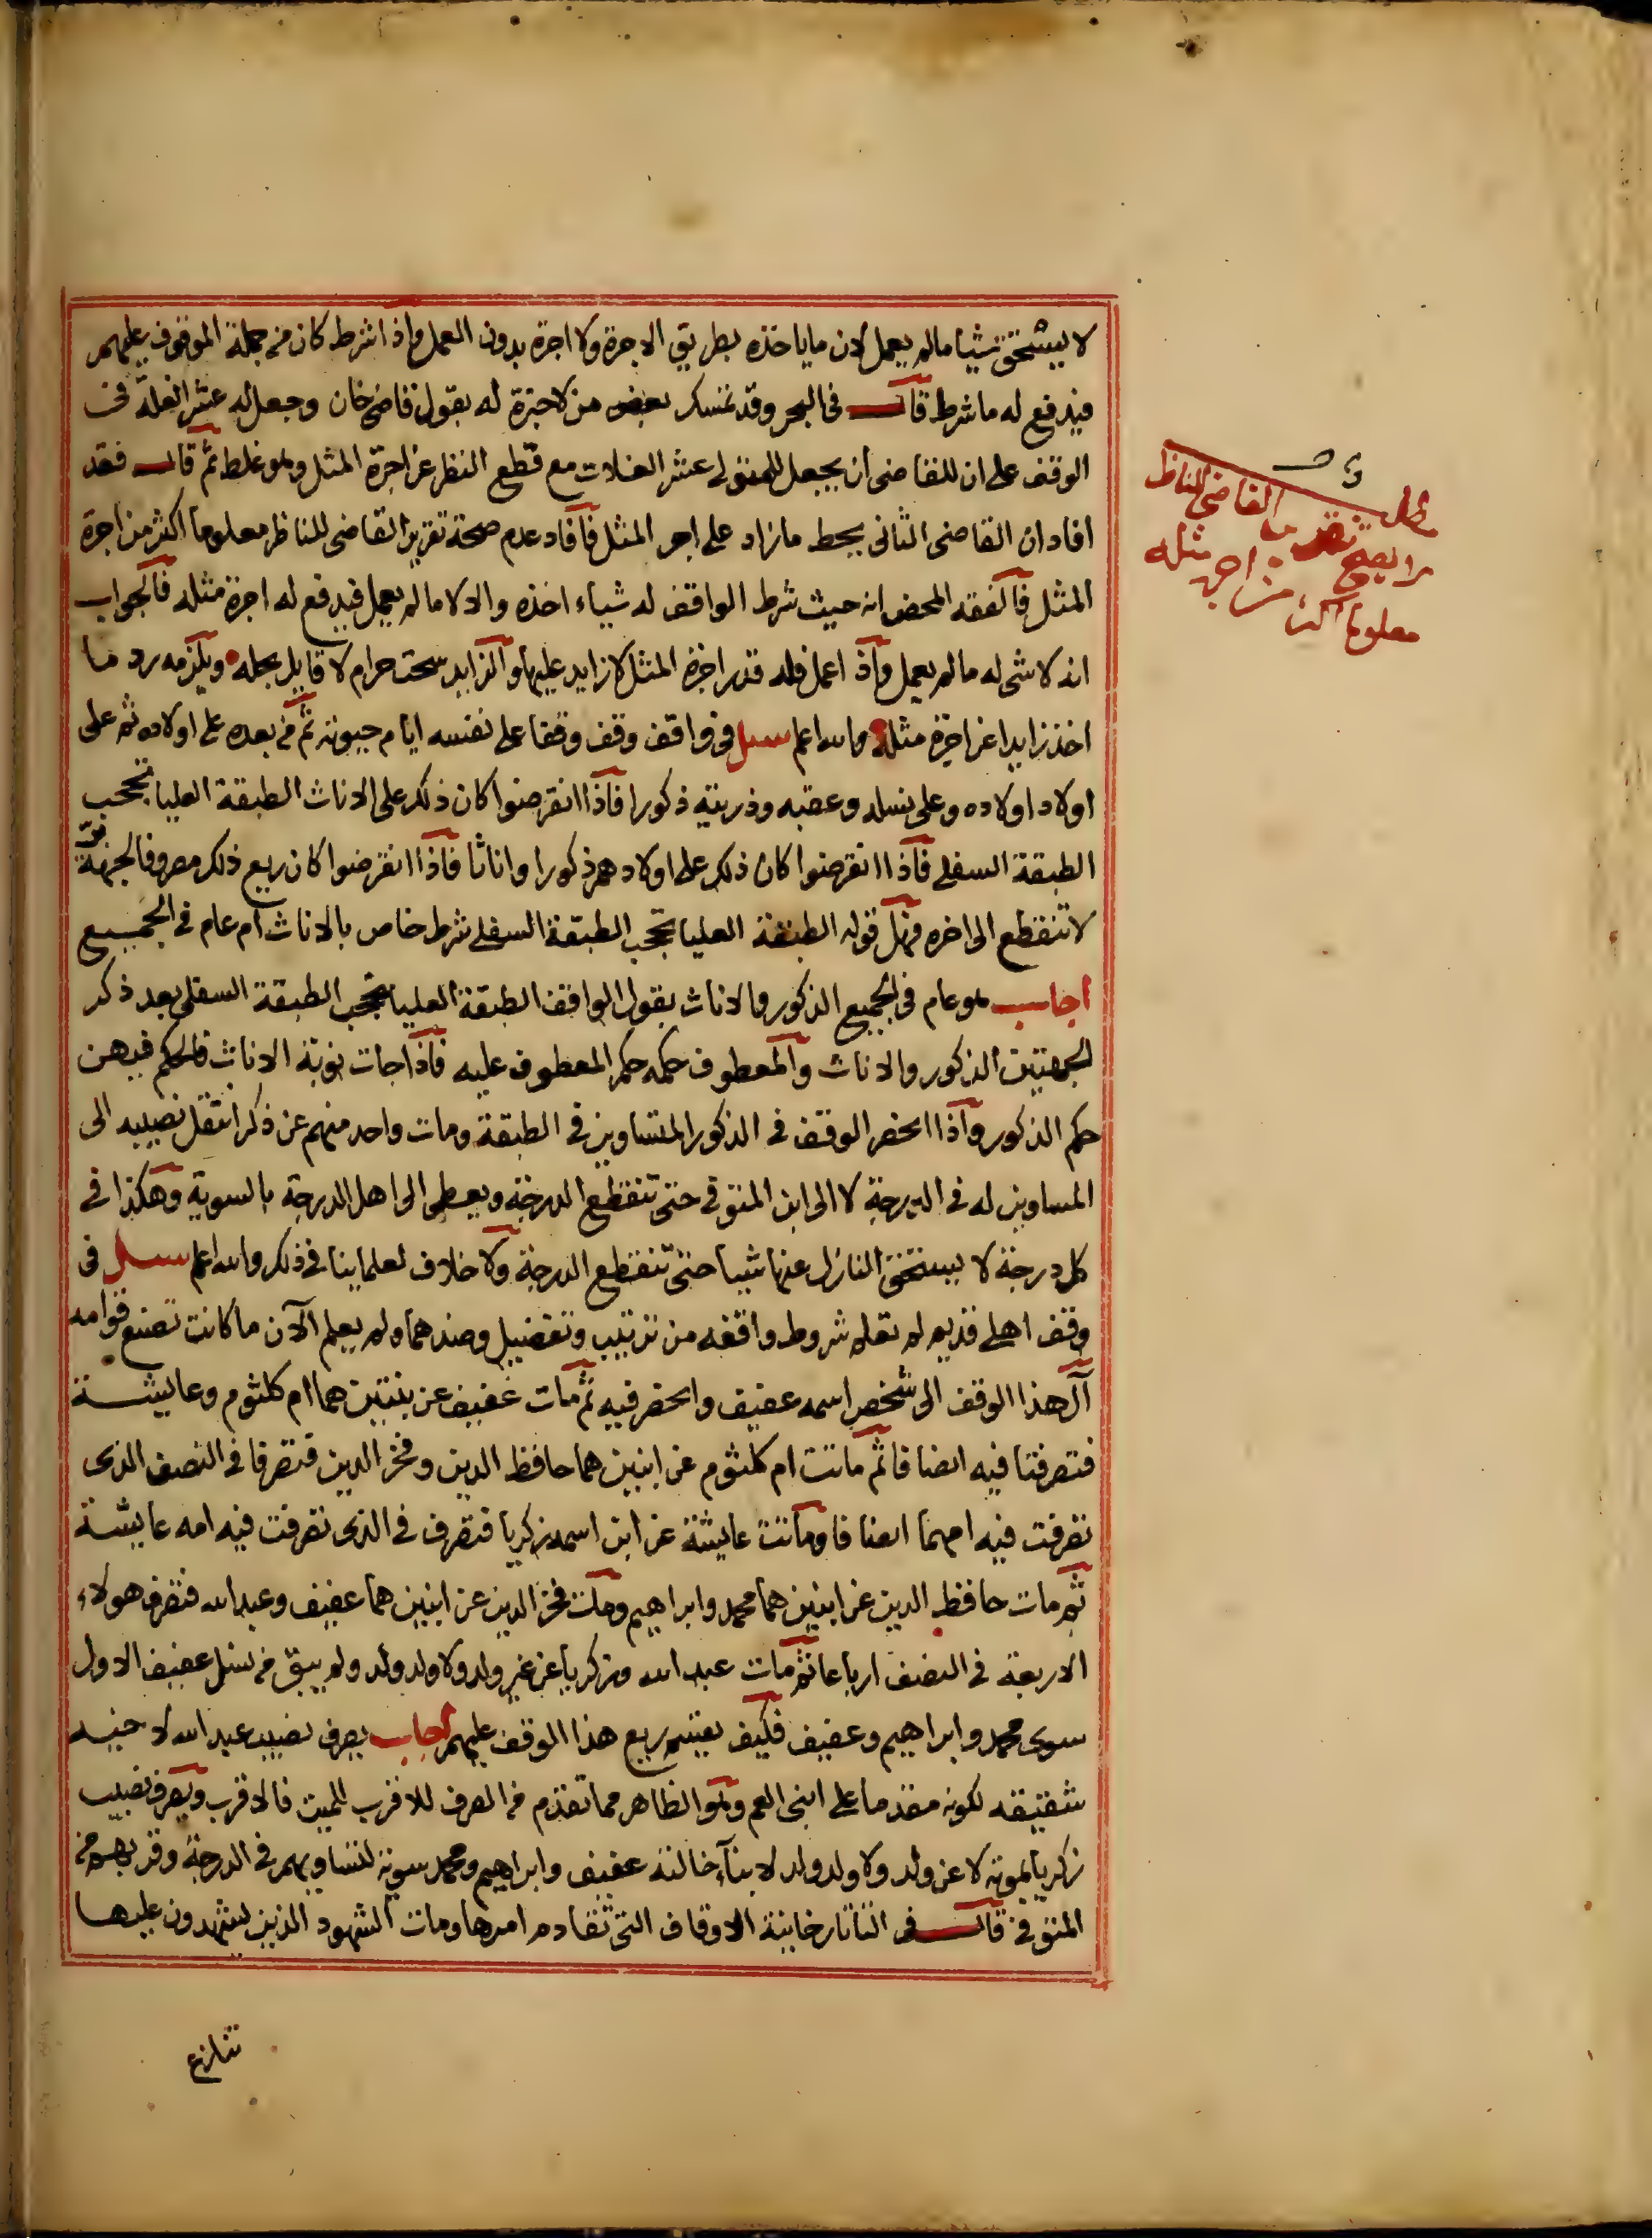 لا يستحق شيا مالم يعمل لان ما ياخذه بطريق الاجرة ولا اجرة بدون العمل واذا شرط كان من جملة الموقوف عليهم
فيدفع له ما شرط قال في البحر وقد تمسك بعض من لا خبرة له بقول قاضي خان وجعل له عشر الغلة في
الوقف على ان للقاضي ان يجعل للمتولى عشر الغلات مع قطع النظر عن اجرة المثل وهو غلط ثم قال فقد
افاد ان القاضي الثاني يحط ما زاد على اجر المثل فافاد عدم صحة تقرير القاضي للناظر معلوما اكثر من اجرة
المثل فالفقه المحض انه حيث شرط الواقف له شياء اخذه والا لا ما لم يعمل فيدفع له اجرة مثله فالجواب
انه لا شي له مالم يعمل واذا عمل فله قدر اجرة المثل لا زايد عليها والزايد سحت حرام لا قايل بحله ويلزمه رد ما
اخذ زايدا عن اجرة مثله والله اعلم سيل في واقف وقف وقفا على نفسه ايام حيوته ثم من بعده على اولاده ثم على
اولاد اولاده وعلى نسله وعقبه وذريته ذكورا فاذا انقرضوا كان ذلك على الاناث الطبقة العليا تحجب
الطبقة السفلى فاذا انقرضوا كان ذلك على اولادهم ذكورا واناثا فاذا انقرضوا كان ريع ذلك مصروفا لجهة بر
لا تنقطع الى اخره فهل قوله الطبقة العليا تحجب الطبقة السفلى شرط خاص بالاناث ام عام في الجميع
اجاب هو عام في الجميع الذكور والاناث بقول الواقف الطبقة العليا تحجب الطبقة السفلى بعد ذكر
الجهتين الذكور والاناث والمعطوف حكمه حكم المعطوف عليه فاذا جات نوبة الاناث فالحكم فيهن
حكم الذكور واذا انحصر الوقف في الذكور المتساوين في الطبقة ومات واحد منهم عن ذكر انتقل نصيبه الى
المساوين له في الدرجة لا الى ابن المتوفى حتى تنقطع الدرجة ويعطى الى اهل الدرجة بالسوية وهكذا في
كل درجة لا يستحق النازل عنها شيا حتى تنقطع الدرجة ولا خلاف لعلماينا في ذلك والله اعلم سيل في
وقف اهلى قديم لم تعلم شروط واقفه من ترتيب وتفضيل وضدهما ولم يعلم الآن ما كانت تصنع قوامه
آل هذا الوقف الى شخص اسمه عفيف وانحصر فيه ثم مات عفيف عن بنتين هما ام كلثوم وعايشة
فتصرفتا فيه انصافا ثم ماتت ام كلثوم عن ابنين هما حافظ الدين وفخر الدين فتصرفا في النصف الذى
تصرفت فيه امهما انصافا وماتت عايشة عن ابن اسمه زكريا فتصرف في الذى تصرفت فيه امه عايشة
ثم مات حافظ الدين عن ابنين هما محمد وابراهيم ومات فخر الدين عن ابنين هما عفيف وعبد الله فتصرف هولاء
الاربعة في النصف ارباعا ثم مات عبد الله وزكريا عن غير ولد ولا ولد ولد ولم يبق من نسل عفيف الاول
سوى محمد وابراهيم وعفيف فكيف يقسم ريع هذا الوقف عليهم اجاب يصرف نصيب عبد الله لاخيه
شقيقه لكونه مقدما على ابنى العم وهو الظاهر مما تقدم من الصرف للاقرب للميت فالاقرب ويصرف نصيب
زكريا بموته لا عن ولد ولا ولد ولد لابناء خالته عفيف وابراهيم ومحمد سوية لتساويهم في الدرجة وقربهم من
المتوفى قال في التاتارخانية الاوقاف التى تقادم امرها ومات الشهود الذين يشهدون عليها
تنازع
مطلب
لا يصح تقرير القاضي للناظر
معلوما اكثر من اجرة مثله